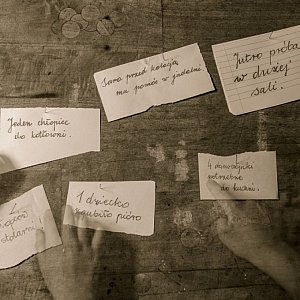 Jutro próba
w dużej
sali.
Sara przed kolacją
ma pomóc w jadalni.
Jeden chłopiec
do kotłowni.
4 dziewczynki
potrzebne
do kuchni.
1 dziecko
zgubiło pióro
stolarni